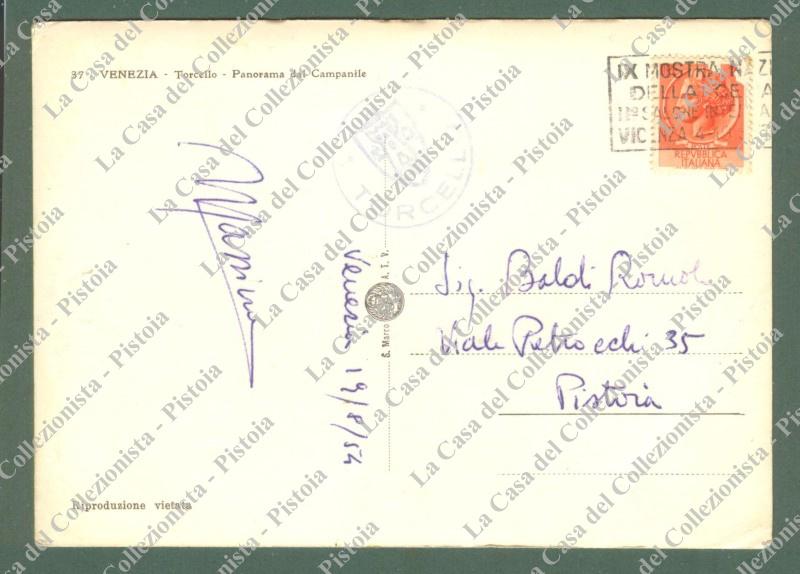 37 - VENEZIA - Torcello - Panorama dal Campanile
IX MOSTRA NAZI
DELLA CE A
VICENZA 4-
REPUBBLICA
ITALIANA
TORCELL
Massimo
Venezia 19/8/54
S. Marco A. T. V.
Sig. Baldi Romolo
Viale Petrocchi 35
Pistoia
Riproduzione vietata
La Casa del Collezionista - Pistoia